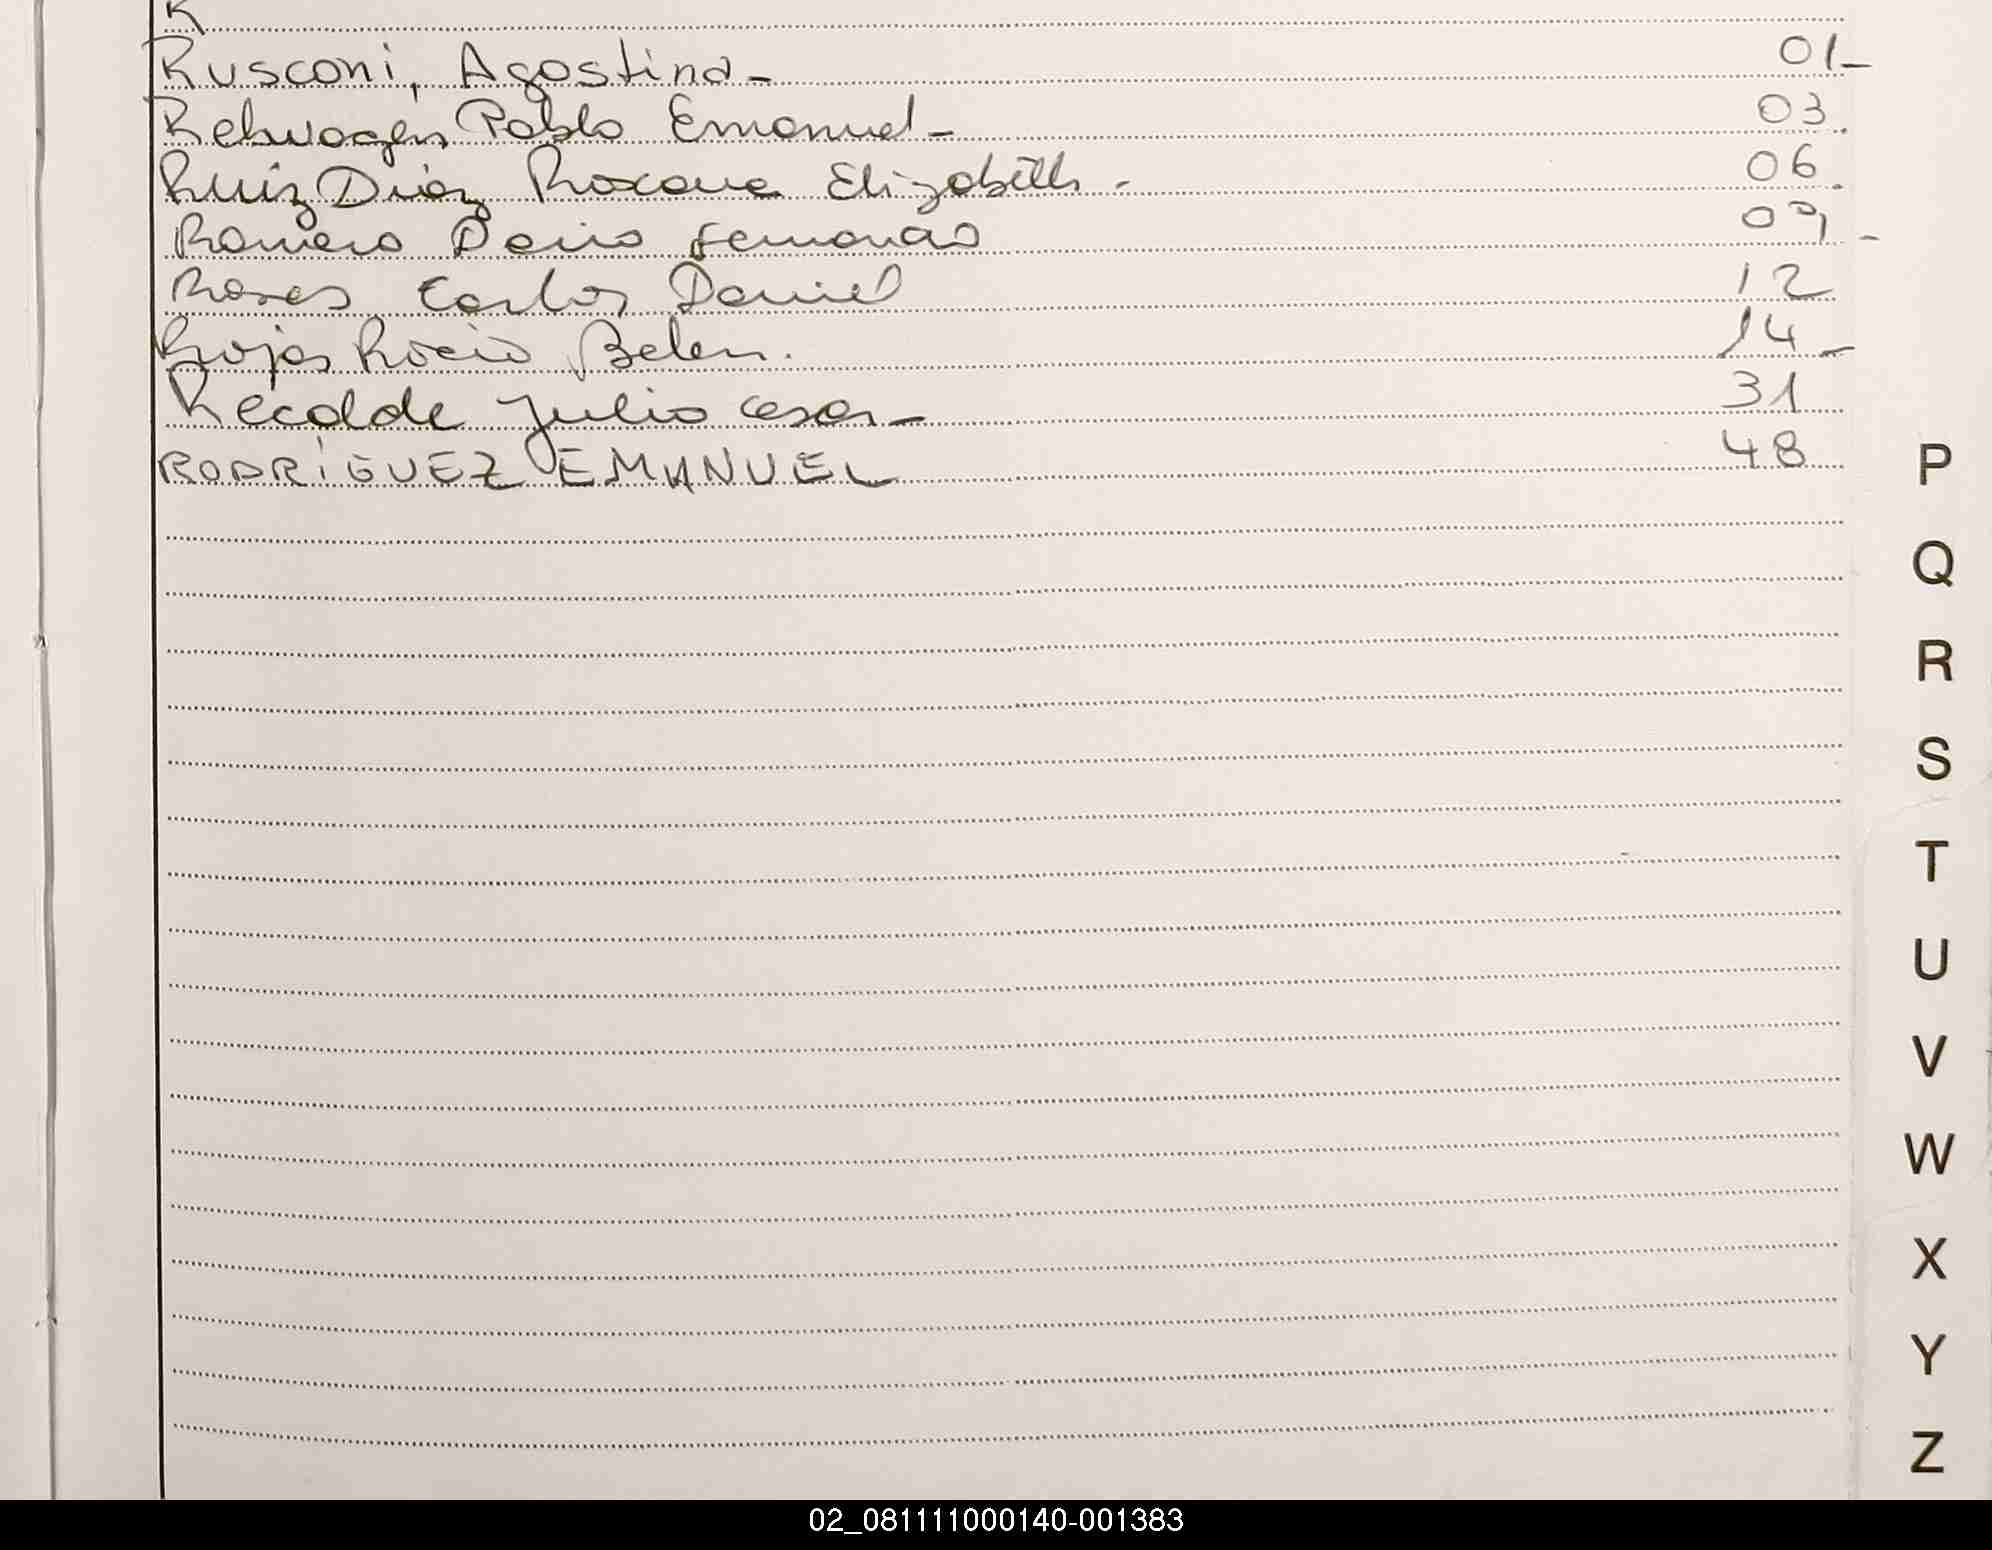 R
Rusconi, Agostina - 01 -
Pablo Emanuel - 03.
Ruiz Diaz Roxana Elizabeth. 06.
Romero Dario Fernando 09 -
Carlos Daniel 12
Rojas Rocio Belen. 14 -
Recalde Julio Cesar - 31
RODRÍGUEZ EMANUEL 48
P
Q
R
S
T
U
V
W
X
Y
Z
02_081111000140-001383